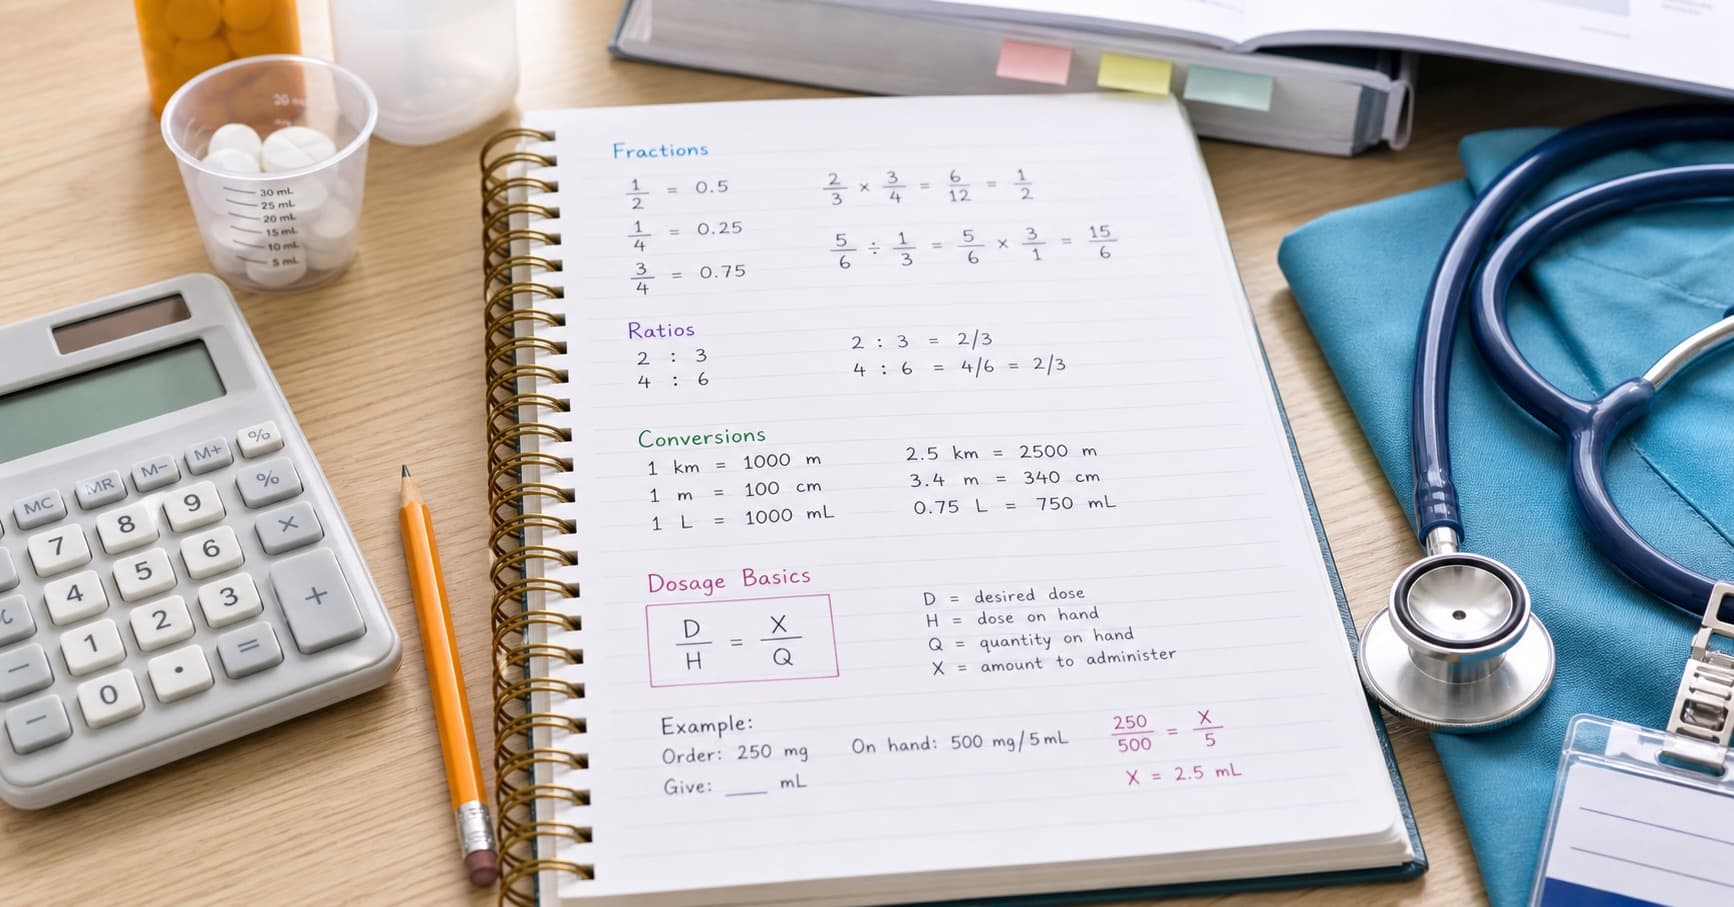 30 mL
25 mL
20 mL
15 mL
10 mL
5 mL
MC MR M- M+ %
7 8 9 %
4 5 6 ×
1 2 3 +
0 . =
Fractions
1/2 = 0.5
1/4 = 0.25
3/4 = 0.75
2/3 × 3/4 = 6/12 = 1/2
5/6 ÷ 1/3 = 5/6 × 3/1 = 15/6
Ratios
2 : 3
4 : 6
2 : 3 = 2/3
4 : 6 = 4/6 = 2/3
Conversions
1 km = 1000 m
1 m = 100 cm
1 L = 1000 mL
2.5 km = 2500 m
3.4 m = 340 cm
0.75 L = 750 mL
Dosage Basics
D/H = X/Q
D = desired dose
H = dose on hand
Q = quantity on hand
X = amount to administer
Example:
Order: 250 mg
Give: ____ mL
On hand: 500 mg/5mL
250/500 = X/5
X = 2.5 mL